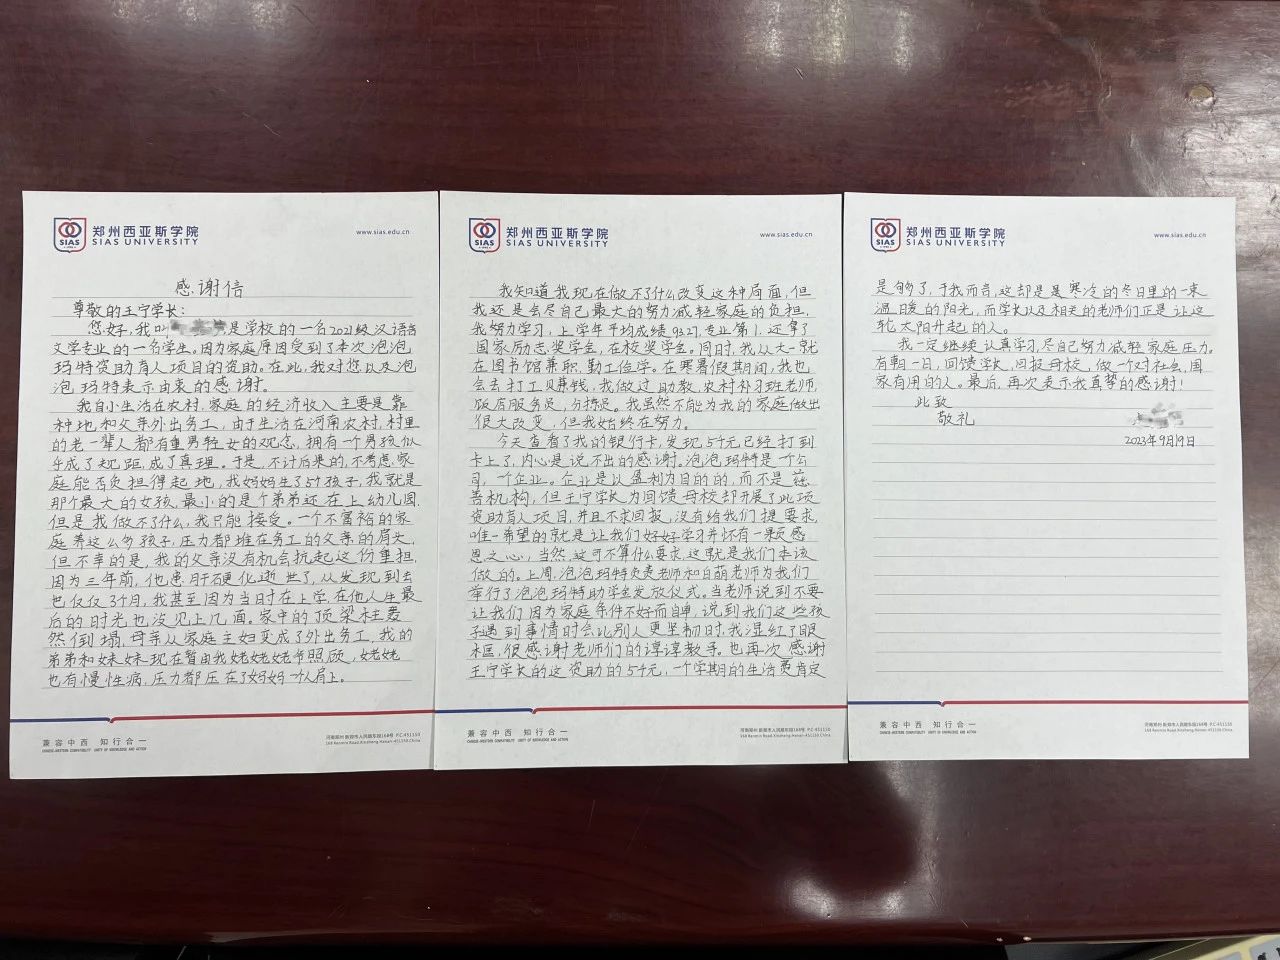 郑州西亚斯学院
SIAS UNIVERSITY
SIAS
www.sias.edu.cn
感谢信
尊敬的王宁学长：
您好，我叫是学校的一名2021级汉语言
文学专业的一名学生。因为家庭原因受到了本次泡泡
玛特资助育人项目的资助。在此，我对您以及泡
泡玛特表示由衷的感谢。
我自小生活在农村，家庭的经济收入主要是靠
种地和父亲外出务工，由于生活在河南农村，村里
的老一辈人都有重男轻女的观念，拥有一个男孩似
乎成了规距，成了真理。于是，不计后果的，不考虑家
庭能否负担得起地，我妈妈生了5个孩子，我就是
那个最大的女孩，最小的是个弟弟还在上幼儿园，
但是我做不了什么，我只能接受。一个不富裕的家
庭养这么多孩子，压力都堆在务工的父亲的肩头，
但不幸的是，我的父亲没有机会抗起这份重担，
因为三年前，他患肝硬化逝世了，从发现到去
也仅仅3个月，我甚至因为当时在上学，在他人生最
后的时光也没见上几面。家中的顶梁柱轰
然倒塌，母亲从家庭主妇变成了外出务工，我的
弟弟和妹妹现在暂由我姥姥姥爷照顾，姥姥
也有慢性病，压力都压在了妈妈一个人肩上。
兼容中西 知行合一
CHINESE-WESTERN COMPATIBILITY UNITY OF KNOWLEDGE AND ACTION
河南郑州 新郑市人民路东段168号 P.C:451150
168 Renmin Road.Xinzheng.Henan·451150.China
郑州西亚斯学院
SIAS UNIVERSITY
SIAS
www.sias.edu.cn
我知道我现在做不了什么改变这种局面，但
我还是会尽自己最大的努力减轻家庭的负担，
我努力学习，上学年平均成绩93.27，专业第1，还拿了
国家励志奖学金，在校奖学金。同时，我从大一就
在图书馆兼职，勤工俭学。在寒暑假期间，我也
会去打工贝兼钱，我做过助教，农村补习班老师，
饭店服务员，分拣员。我虽然不能为我的家庭做出
很大改变，但我始终在努力。
今天查看了我的银行卡，发现5千元已经打到
卡上了，内心是说不出的感谢。泡泡玛特是一个公
司，一个企业。企业是以盈利为目的的，而不是慈
善机构，但王宁学长为回馈母校却开展了此项
资助育人项目，并且不求回报，没有给我们提要求，
唯一希望的就是让我们好好学习并怀有一颗感
恩之心，当然，这可不算什么要求，这就是我们本该
做的。上周，泡泡玛特负责老师和白萌老师为我们
举行了泡泡玛特助学金发放仪式。当老师说到不要
让我们因为家庭条件不好而自卑，说到我们这些孩
子遇到事情时会比别人更坚韧时，我湿红了眼
眶，很感谢老师们的谆谆教导。也再次感谢
王宁学长的这资助的5千元，一个学期的生活费肯定
兼容中西 知行合一
CHINESE-WESTERN COMPATIBILITY UNITY OF KNOWLEDGE AND ACTION
河南郑州 新郑市人民路东段168号 P.C:451150
168 Renmin Road.Xinzheng.Henan·451150.China
郑州西亚斯学院
SIAS UNIVERSITY
SIAS
www.sias.edu.cn
是够了，于我而言，这却是是寒冷的冬日里的一束
温暖的阳光，而学长以及相关的老师们正是让这
轮太阳升起的人。
我一定继续认真学习，尽自己努力减轻家庭压力。
有朝一日，回馈学长，回报母校，做一个对社会，国
家有用的人。最后，再次表示我真挚的感谢！
此致
敬礼
2023年9月19日
兼容中西 知行合一
CHINESE-WESTERN COMPATIBILITY UNITY OF KNOWLEDGE AND ACTION
河南郑州 新郑市人民路东段168号 P.C:451150
168 Renmin Road.Xinzheng.Henan·451150.China